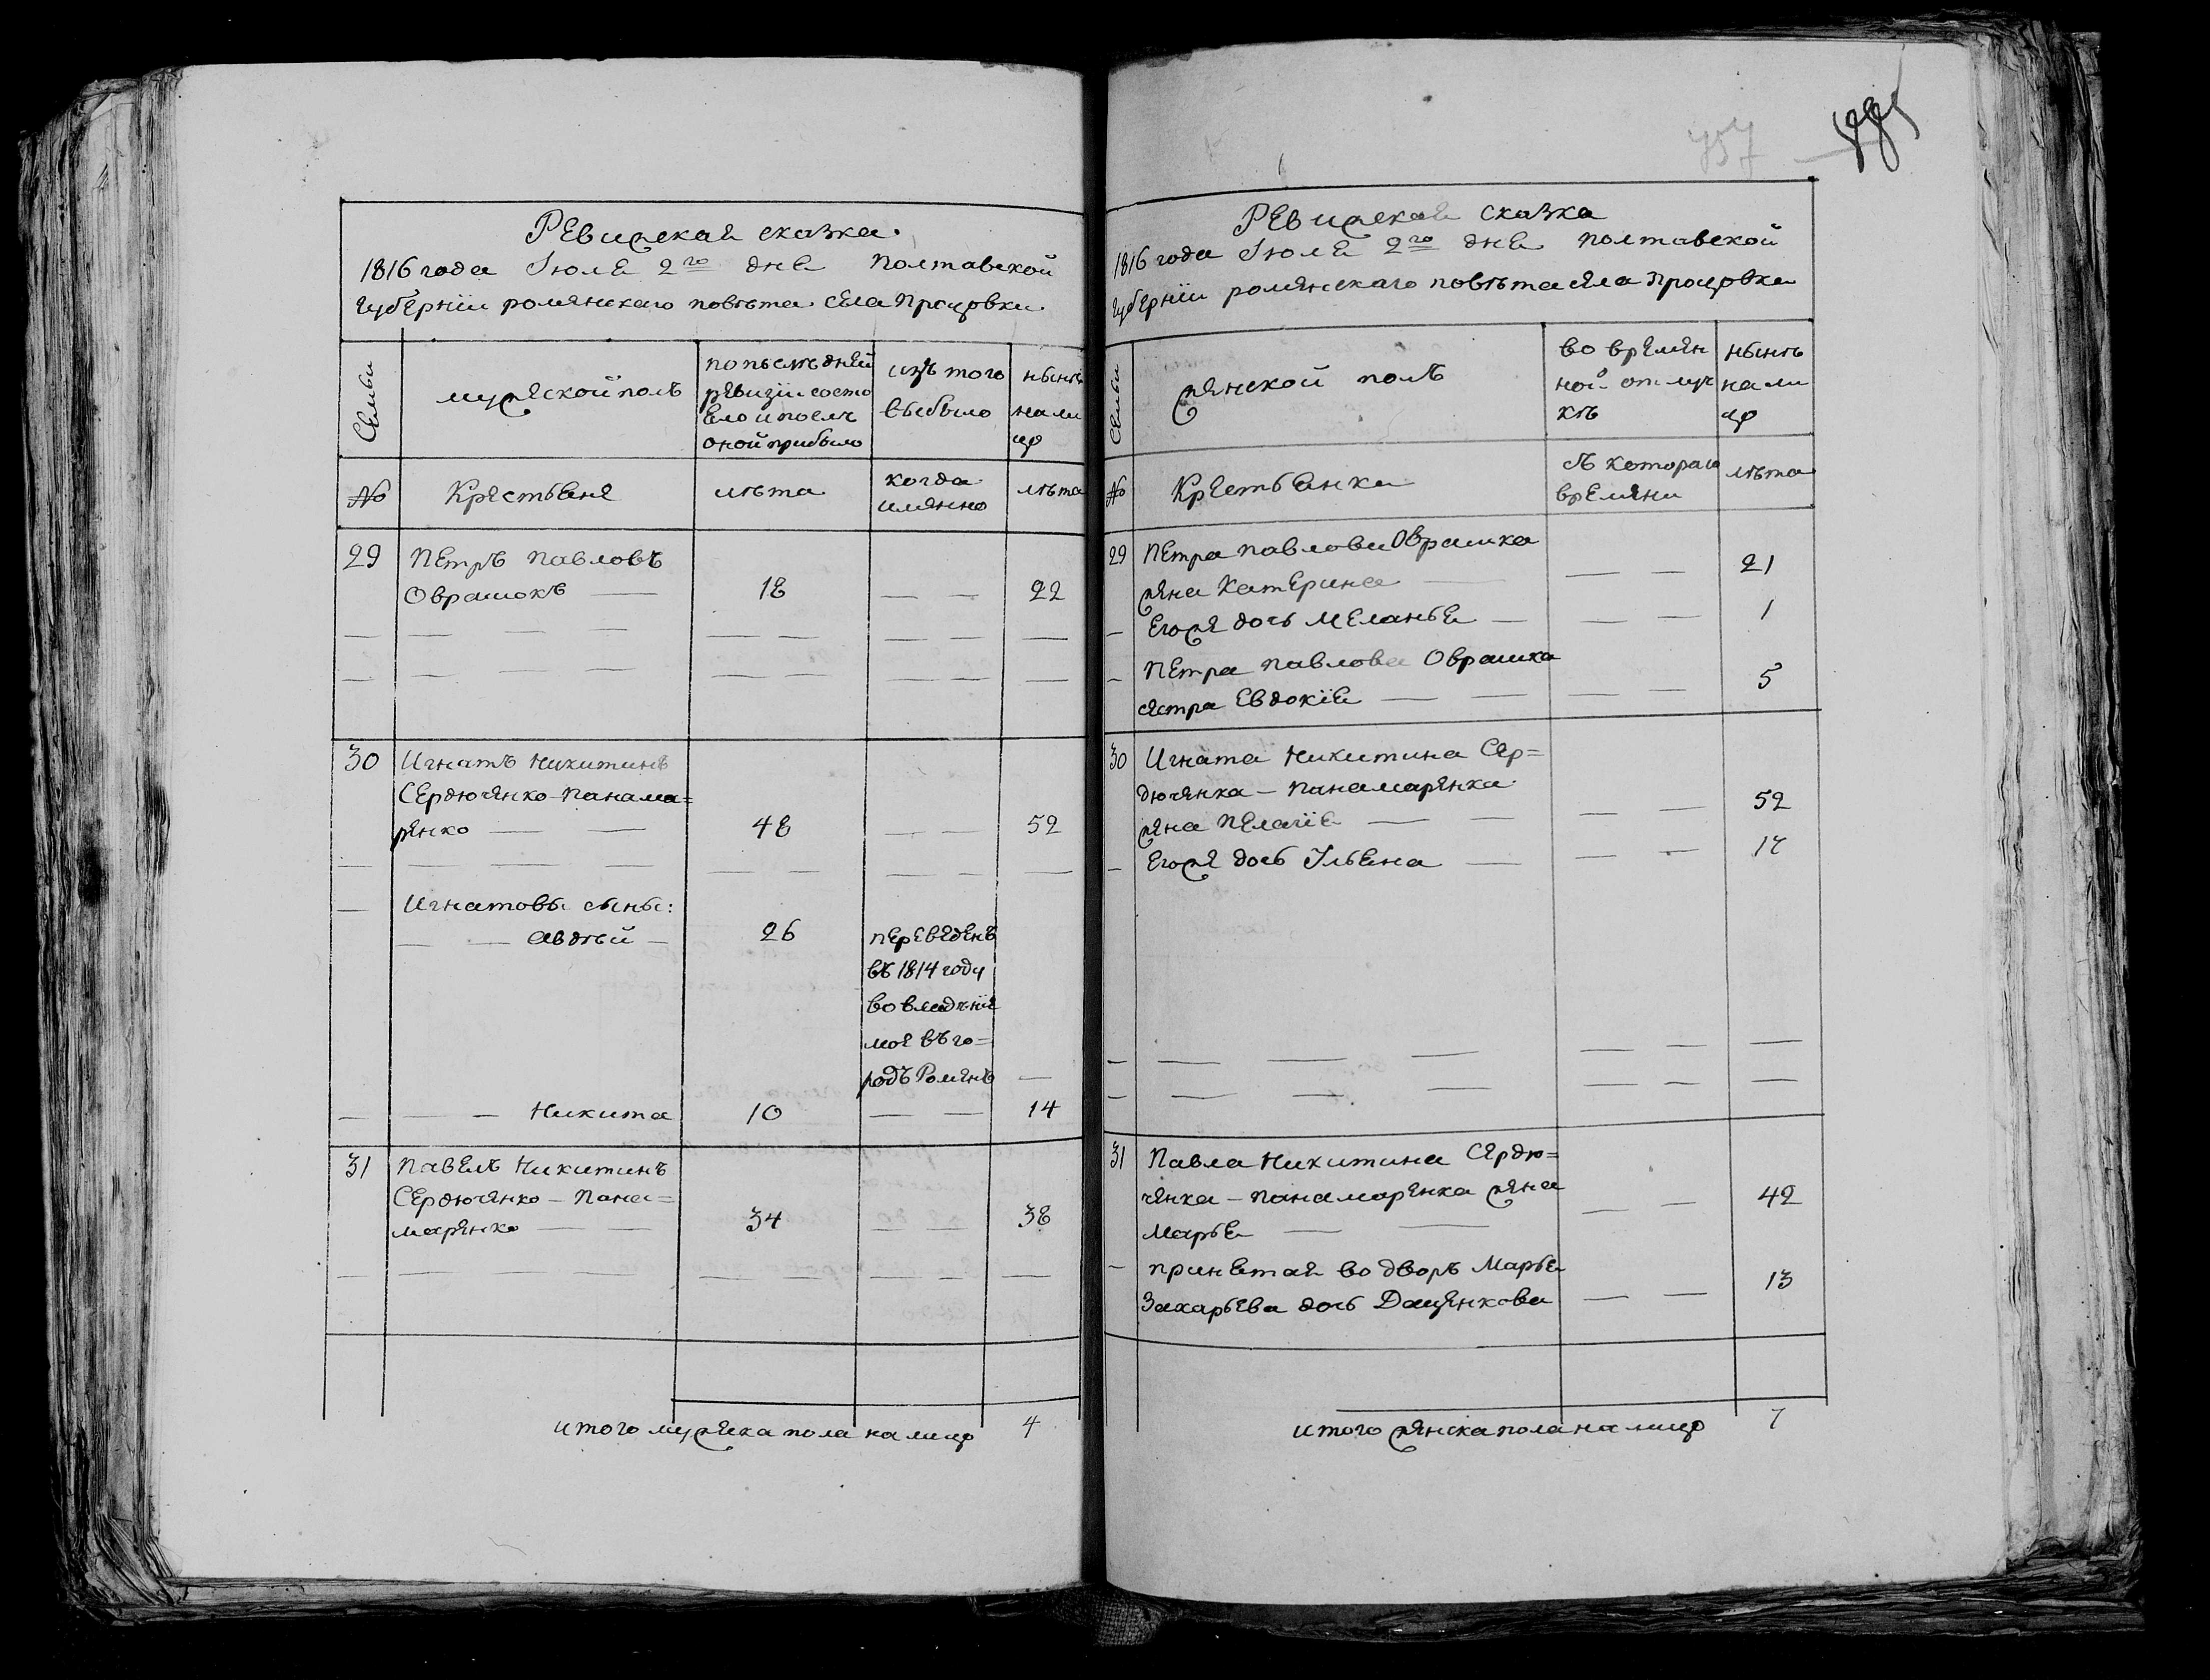 Ревижская сказка.
1816 года Іюля 2го дня Полтавской
Губерніи роменскаго повѣта села Процовки
Семьи
мужеской полъ
по последней
ревизіи состо
яло и послѣ
оной прибыло
изъ того
выбыло
нынѣ
на ли
цо
№
Крестьяне
лѣта
когда
имянно
лѣта
29
Петръ Павловъ
Оврашокъ
18
22
30
Игнатъ Никитинъ
Сердюченко-Панама=
ренко
48
52
Игнатовы сыны:
Авдѣй
26
переведенъ
въ 1814 году
во владѣніе
мое въ го=
родъ Роменъ
Никита
10
14
31
Павелъ Никитинъ
Сердюченко - Пана=
маренко
34
38
итого мужеска пола на лицо
4
757
Ревижская сказка
1816 года Іюля 2го дня Полтавской
Губерніи роменскаго повѣта села Процовки
Семьи
женской полъ
во времен
ной отлуч
кѣ
нынѣ
на ли
цо
№
Крестьянки
съ котораго
времени
лѣта
29
Петра Павлова Оврашка
жена Катерина
21
Егоже дочь Меланья
1
Петра Павлова Оврашка
сестра Евдокія
5
30
Игната Никитина Сер=
дюченка - Панамаренка
жена Пелагія
52
Егоже дочь Ульяна
17
31
Павла Никитина Сердю=
ченка - Панамаренка жена
Марья
42
принятая во дворъ Марья
Захарьева дочь Даценкова
13
итого женска пола на лицо
7